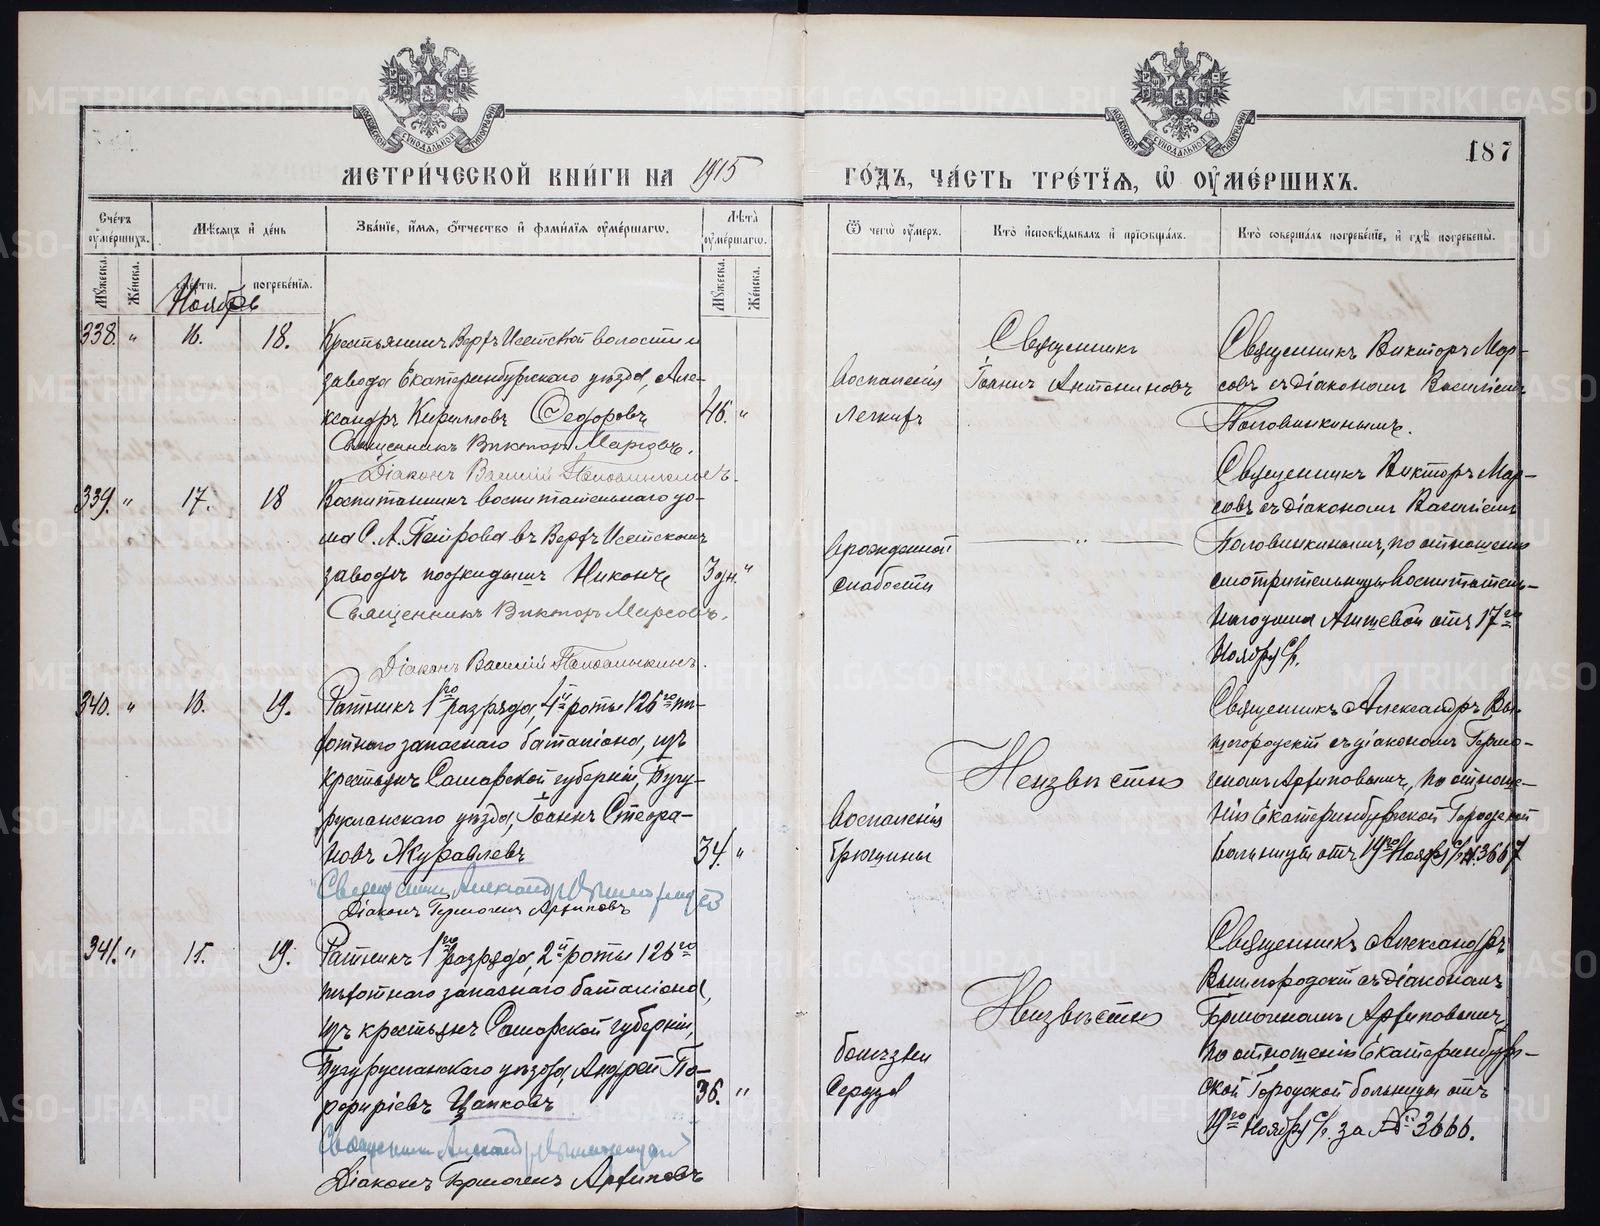 МЕТРИ́ЧЕСКОЙ КНИ́ГИ НА 1915
ГО́ДЪ, ЧА́СТЬ ТРЕ́ТЇѦ, Ѡ ОУМЕ́РШИХЪ.
187
Сче́тъ оуме́ршихъ.
Мѣ́сѧцъ и де́нь
Зва́нїе, и́мѧ, о́тчество и фами́лїѧ оуме́ршагѡ.
Лѣ́та оуме́ршагѡ.
Ѿ чегѡ̀ оу́меръ.
Кто̀ исповѣ́дывалъ и прїѡбща́лъ.
Кто̀ соверша́лъ погребе́нїе, и гдѣ̀ погребены̀.
Мꙋ́жеска.
Же́нска.
сме́рти.
погребе́нїѧ.
Мꙋ́жеска.
Же́нска.
Ноябрь
338. " 16. 18.
Крестьянинъ Верхъ Исетской волости и
завода Екатеринбургскаго уѣзда, Але-
ксандръ Кирилловъ Ѳедоровъ
46. "
Священникъ Викторъ Марсовъ.
Діаконъ Василій Половинкинъ.
Воспаленія
Легкихъ
Священникъ
Іоаннъ Антониновъ
Священникъ Викторъ Мар-
совъ съ діакономъ Василіемъ
Половинкинымъ.
339. " 17. 18
Воспитанникъ воспитательнаго до-
ма С. А. Петрова въ Верхъ Исетскомъ
заводѣ подкидышъ Никонъ
3 дн. "
Священникъ Викторъ Марсовъ.
Діаконъ Василій Половинкинъ.
Врожденной
слабости
"
Священникъ Викторъ Мар-
совъ съ діакономъ Василіемъ
Половинкинымъ, по отношенію
смотрительницы воспитатель-
наго дома отъ 17го
Ноября с/г.
340. " 18. 19.
Ратникъ 1го разряда, 4й роты 126го пѣ-
хотнаго запаснаго баталіона, изъ
крестьянъ Самарской губерніи, Бугу-
русланскаго уѣзда, Іоаннъ Стефа-
новъ Журавлевъ
34. "
Священникъ Александръ Вышегородскій
Діаконъ Гермогенъ Архиповъ
Воспаленія
брюшины
Неизвѣстно
Священникъ Александръ Вы-
шегородскій съ діакономъ Гермо-
геномъ Архиповымъ, по отноше-
нію Екатеринбургской Городской
больницы отъ 19го Ноября с/г № 3667
341. " 15. 19.
Ратникъ 1го разряда, 2й роты 126го
пѣхотнаго запаснаго баталіона,
изъ крестьянъ Самарской губерніи,
Бугурусланскаго уѣзда, Андрей По-
рфиріевъ Цапковъ
36. "
Священникъ Александръ Вышегородскій
Діаконъ Гермогенъ Архиповъ
болѣзни
Сердца
Неизвѣстно
Священникъ Александръ
Вышегородскій съ діакономъ
Гермогеномъ Архиповымъ,
по отношенію Екатеринбург-
ской Городской больницы отъ
19го Ноября с/г. за № 3666.